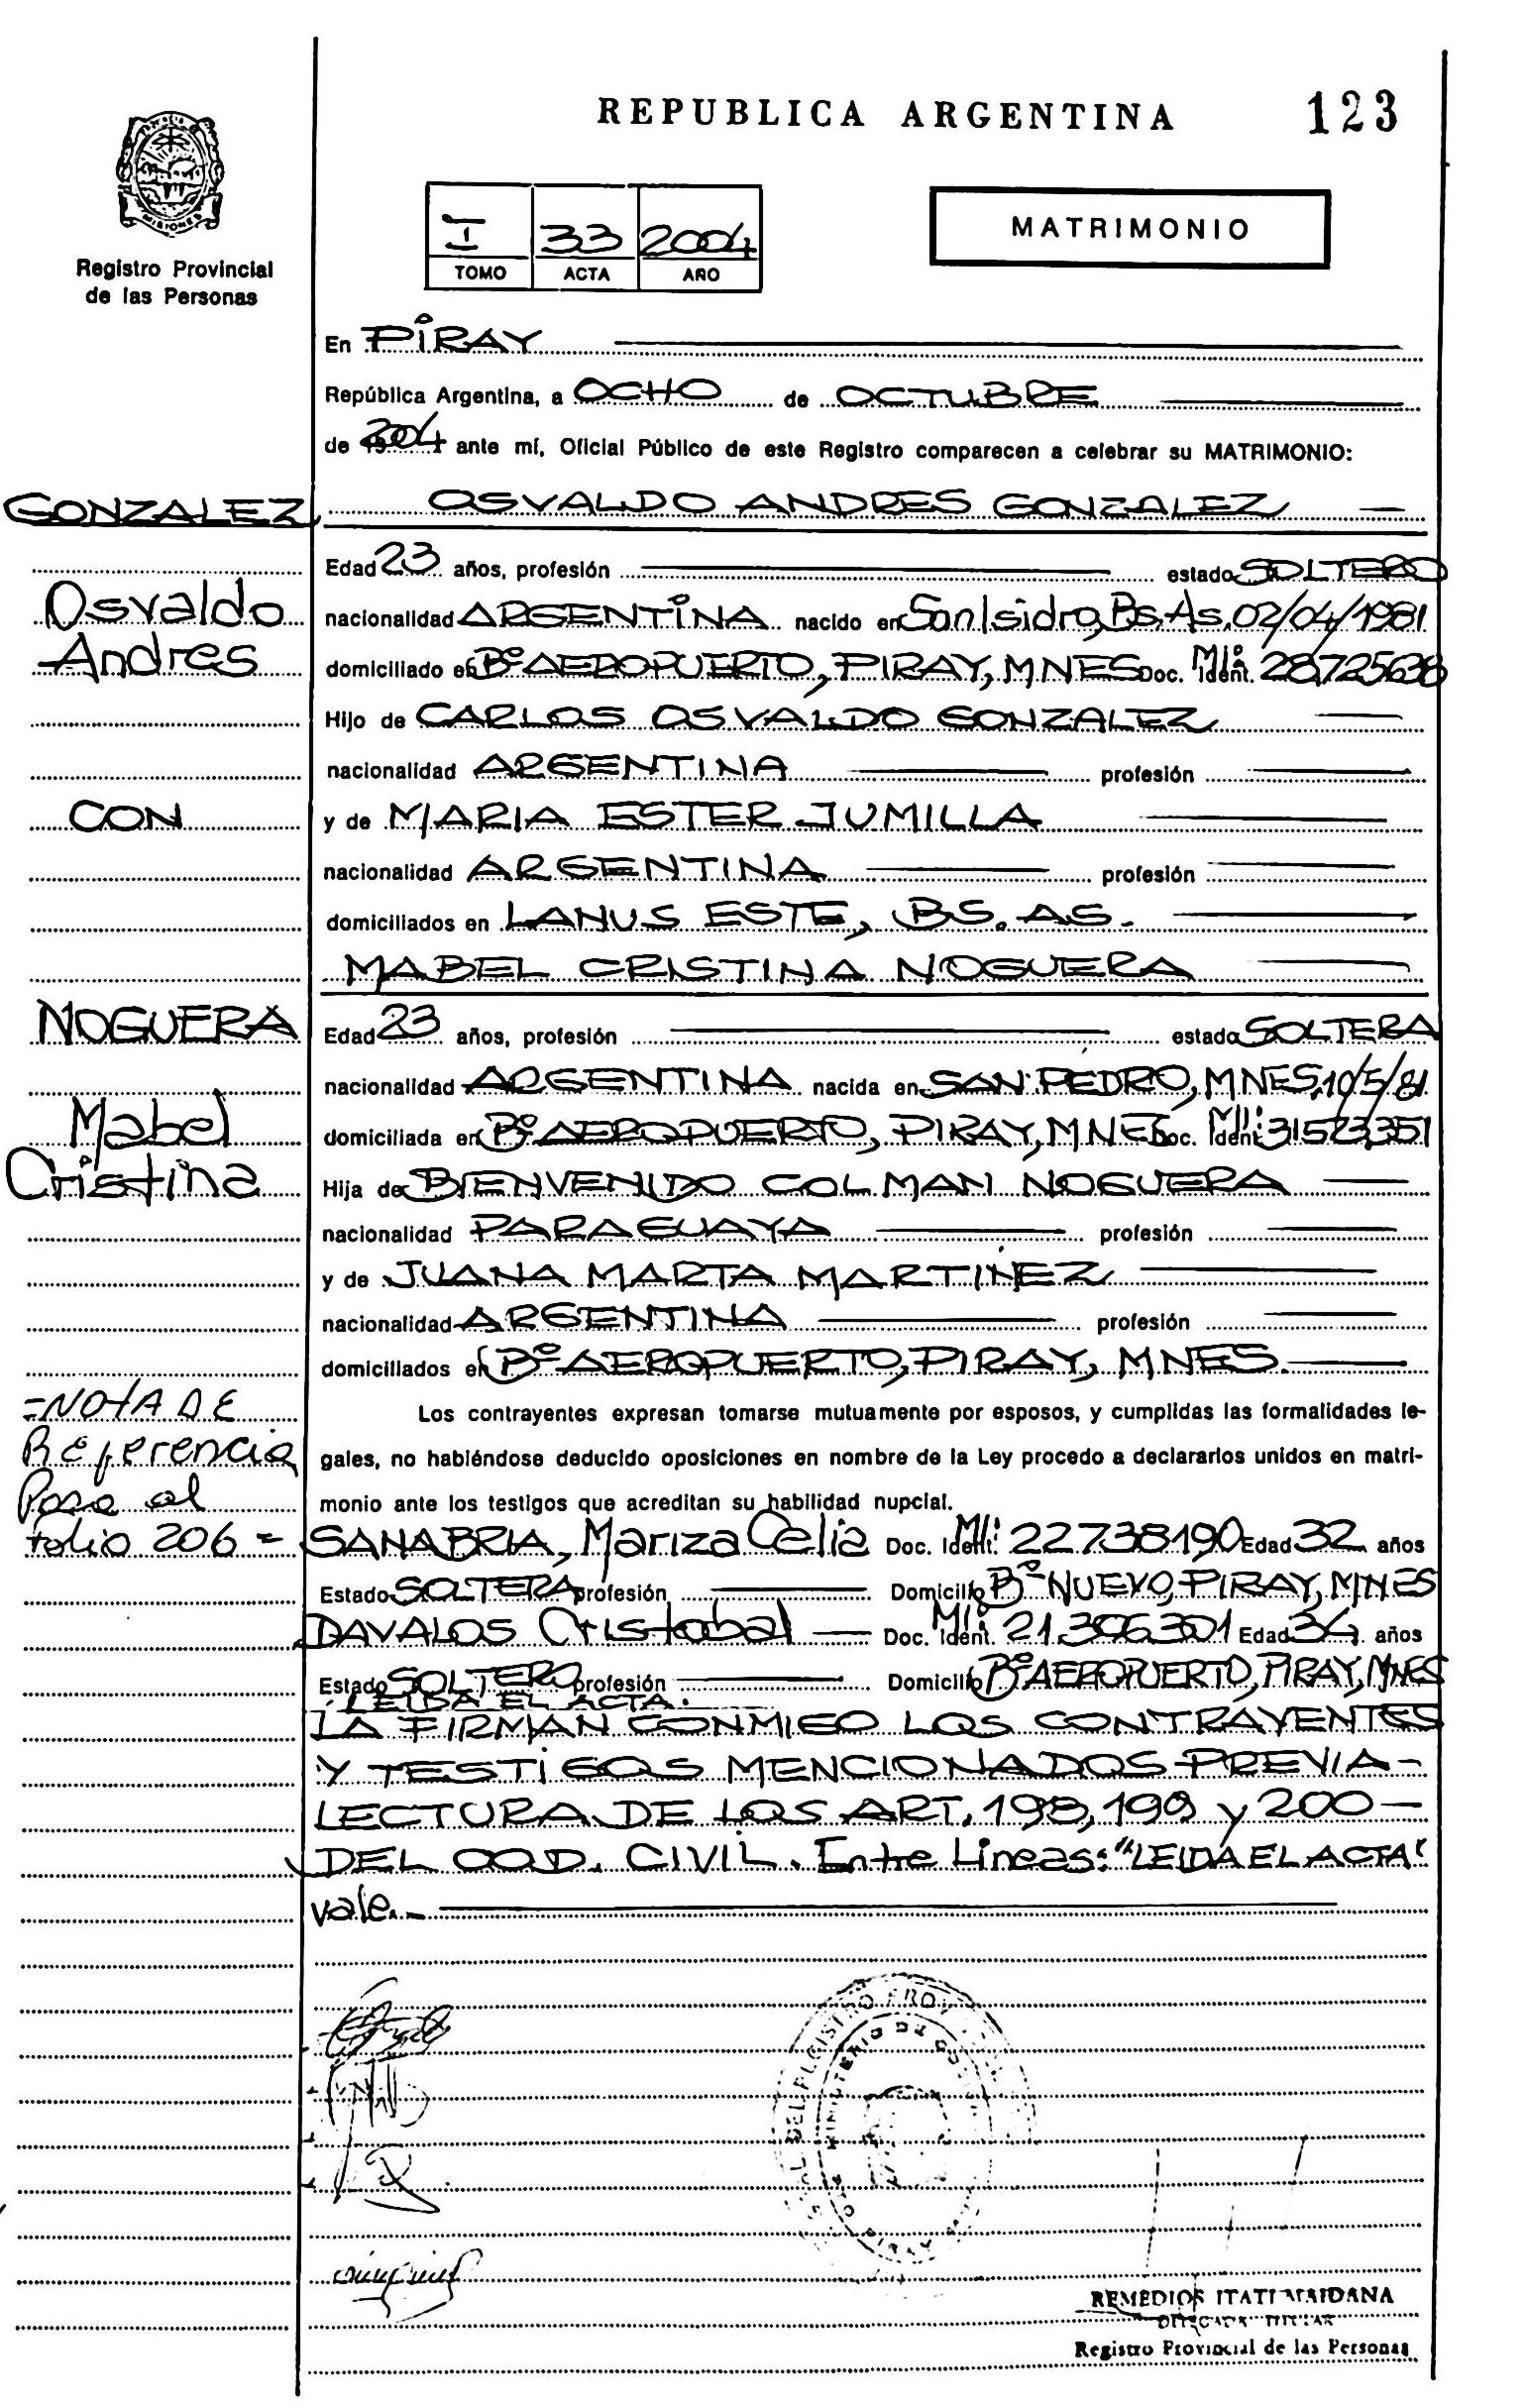 REPUBLICA ARGENTINA 123
MISIONES
Registro Provincial
de las Personas
I 33 2004
TOMO ACTA AÑO
MATRIMONIO
En PIRAY
República Argentina, a OCHO de OCTUBRE
de 2004 ante mí, Oficial Público de este Registro comparecen a celebrar su MATRIMONIO:
GONZALEZ
Osvaldo
Andres
CON
NOGUERA
Mabel
Cristina
=NOTA DE
Referencia
Pasa al
folio 206=
OSVALDO ANDRES GONZALEZ
Edad 23 años, profesión estado SOLTERO
nacionalidad ARGENTINA nacido en San Isidro, Bs. As, 02/04/1981
domiciliado en Bº AEROPUERTO, PIRAY, MNES Doc. Ident. M.I: 28725638
Hijo de CARLOS OSVALDO GONZALEZ
nacionalidad ARGENTINA profesión
y de MARIA ESTER JUMILLA
nacionalidad ARGENTINA profesión
domiciliados en LANUS ESTE, BS. AS.
MABEL CRISTINA NOGUERA
Edad 23 años, profesión estado SOLTERA
nacionalidad ARGENTINA nacida en SAN PEDRO, MNES, 10/5/81
domiciliada en Bº AEROPUERTO, PIRAY, MNES Doc. Ident. M.I: 31523351
Hija de BIENVENIDO COLMAN NOGUERA
nacionalidad PARAGUAYA profesión
y de JUANA MARTA MARTINEZ
nacionalidad ARGENTINA profesión
domiciliados en Bº AEROPUERTO, PIRAY, MNES.
Los contrayentes expresan tomarse mutuamente por esposos, y cumplidas las formalidades le-
gales, no habiéndose deducido oposiciones en nombre de la Ley procedo a declararlos unidos en matri-
monio ante los testigos que acreditan su habilidad nupcial.
SANABRIA, Mariza Celia Doc. Ident. M.I: 22738190 Edad 32 años
Estado SOLTERA profesión Domicilio Bº NUEVO, PIRAY, MNES
DAVALOS Cristobal Doc. Ident. M.I: 21.306.301 Edad 34 años
Estado SOLTERO profesión Domicilio Bº AEROPUERTO, PIRAY, MNES
LEIDA EL ACTA.
LA FIRMAN CONMIGO LOS CONTRAYENTES
Y TESTIGOS MENCIONADOS PREVIA-
LECTURA DE LOS ART. 198, 199 y 200-
DEL COD. CIVIL. Entre Líneas: "LEIDA EL ACTA"
vale.-
REMEDIOS ITATI MAIDANA
DELEGADA TITULAR
Registro Provincial de las Personas